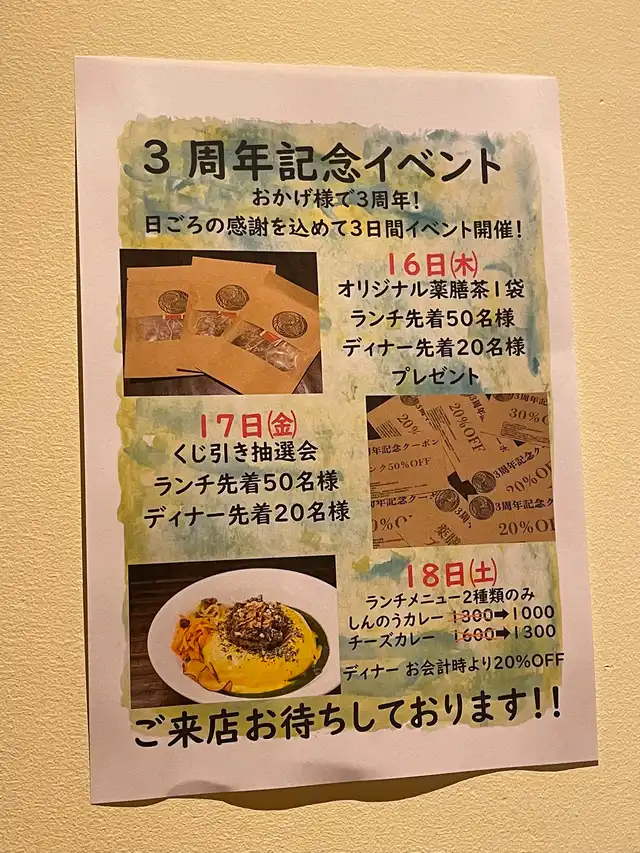 3周年記念イベント
おかげ様で3周年!
日ごろの感謝を込めて3日間イベント開催!
16日(木)
オリジナル薬膳茶1袋
ランチ先着50名様
ディナー先着20名様
プレゼント
17日(金)
くじ引き抽選会
ランチ先着50名様
ディナー先着20名様
20%
20%OFF
30%O
年記念クーポン
ンク50%OFF
3周年記念
周年記念クーポ
3周年記念
20%OF
18日(土)
ランチメニュー2種類のみ
しんのうカレー 1300➡1000
チーズカレー 1600➡1300
ディナー お会計時より20%OFF
ご来店お待ちしております!!